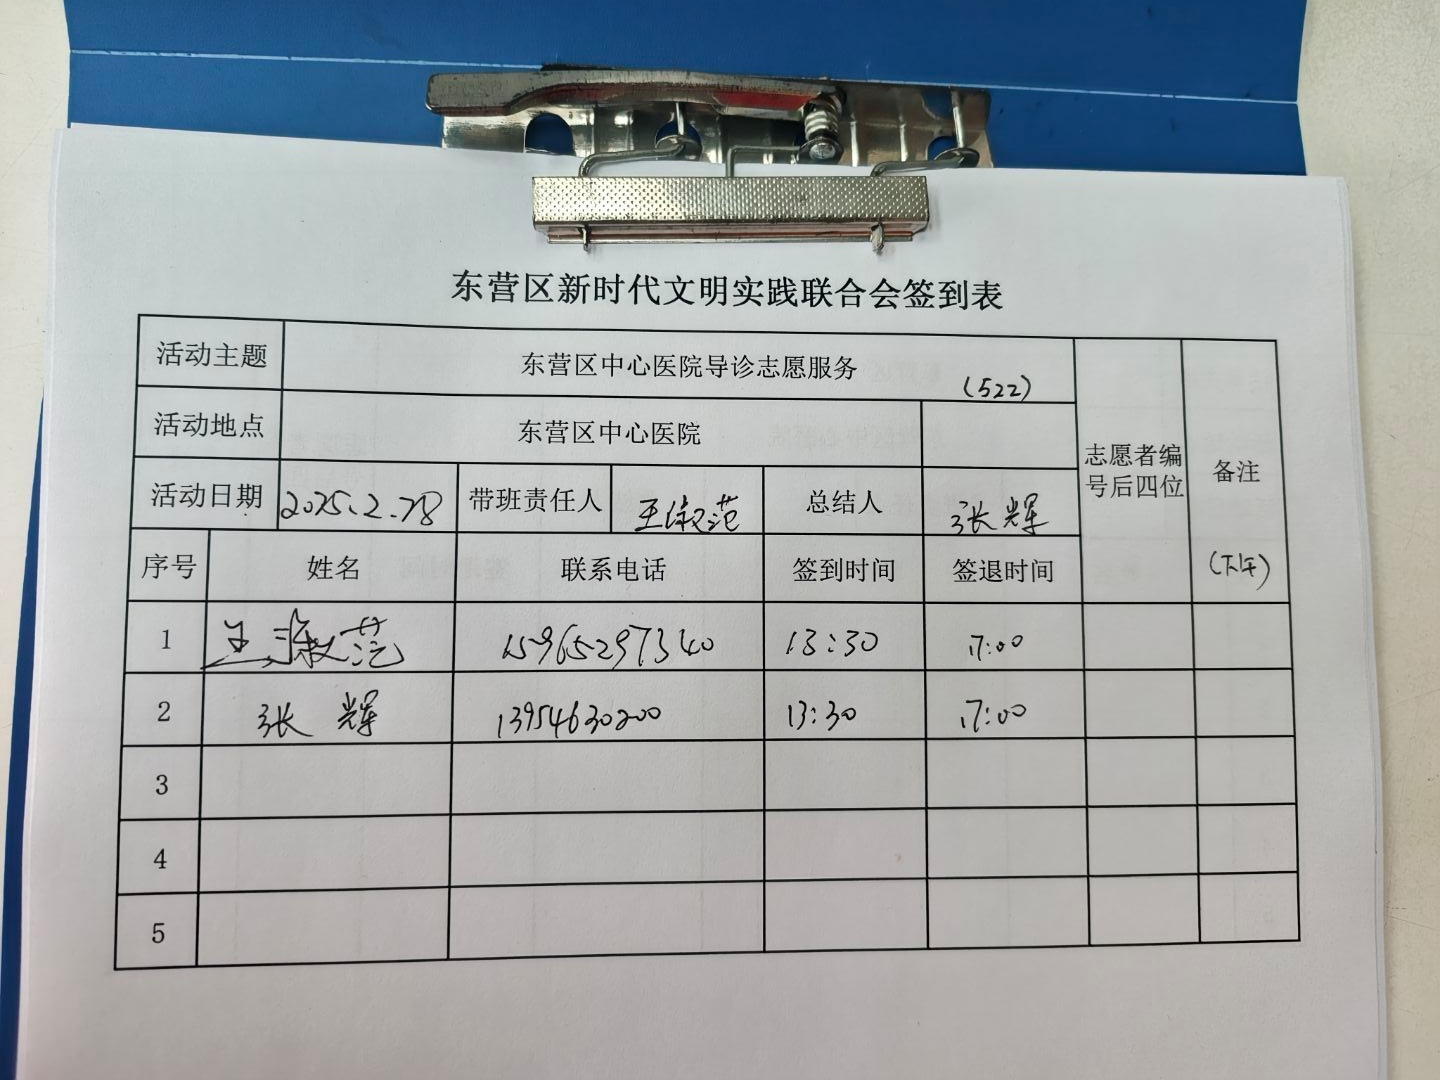 东营区新时代文明实践联合会签到表
活动主题 东营区中心医院导诊志愿服务 (522) 志愿者编号后四位 备注
活动地点 东营区中心医院
活动日期 2025.2.28 带班责任人 王淑范 总结人 张辉
序号 姓名 联系电话 签到时间 签退时间 (下午)
1 王淑范 15965297340 13:30 17:00
2 张辉 13954630200 13:30 17:00
3
4
5